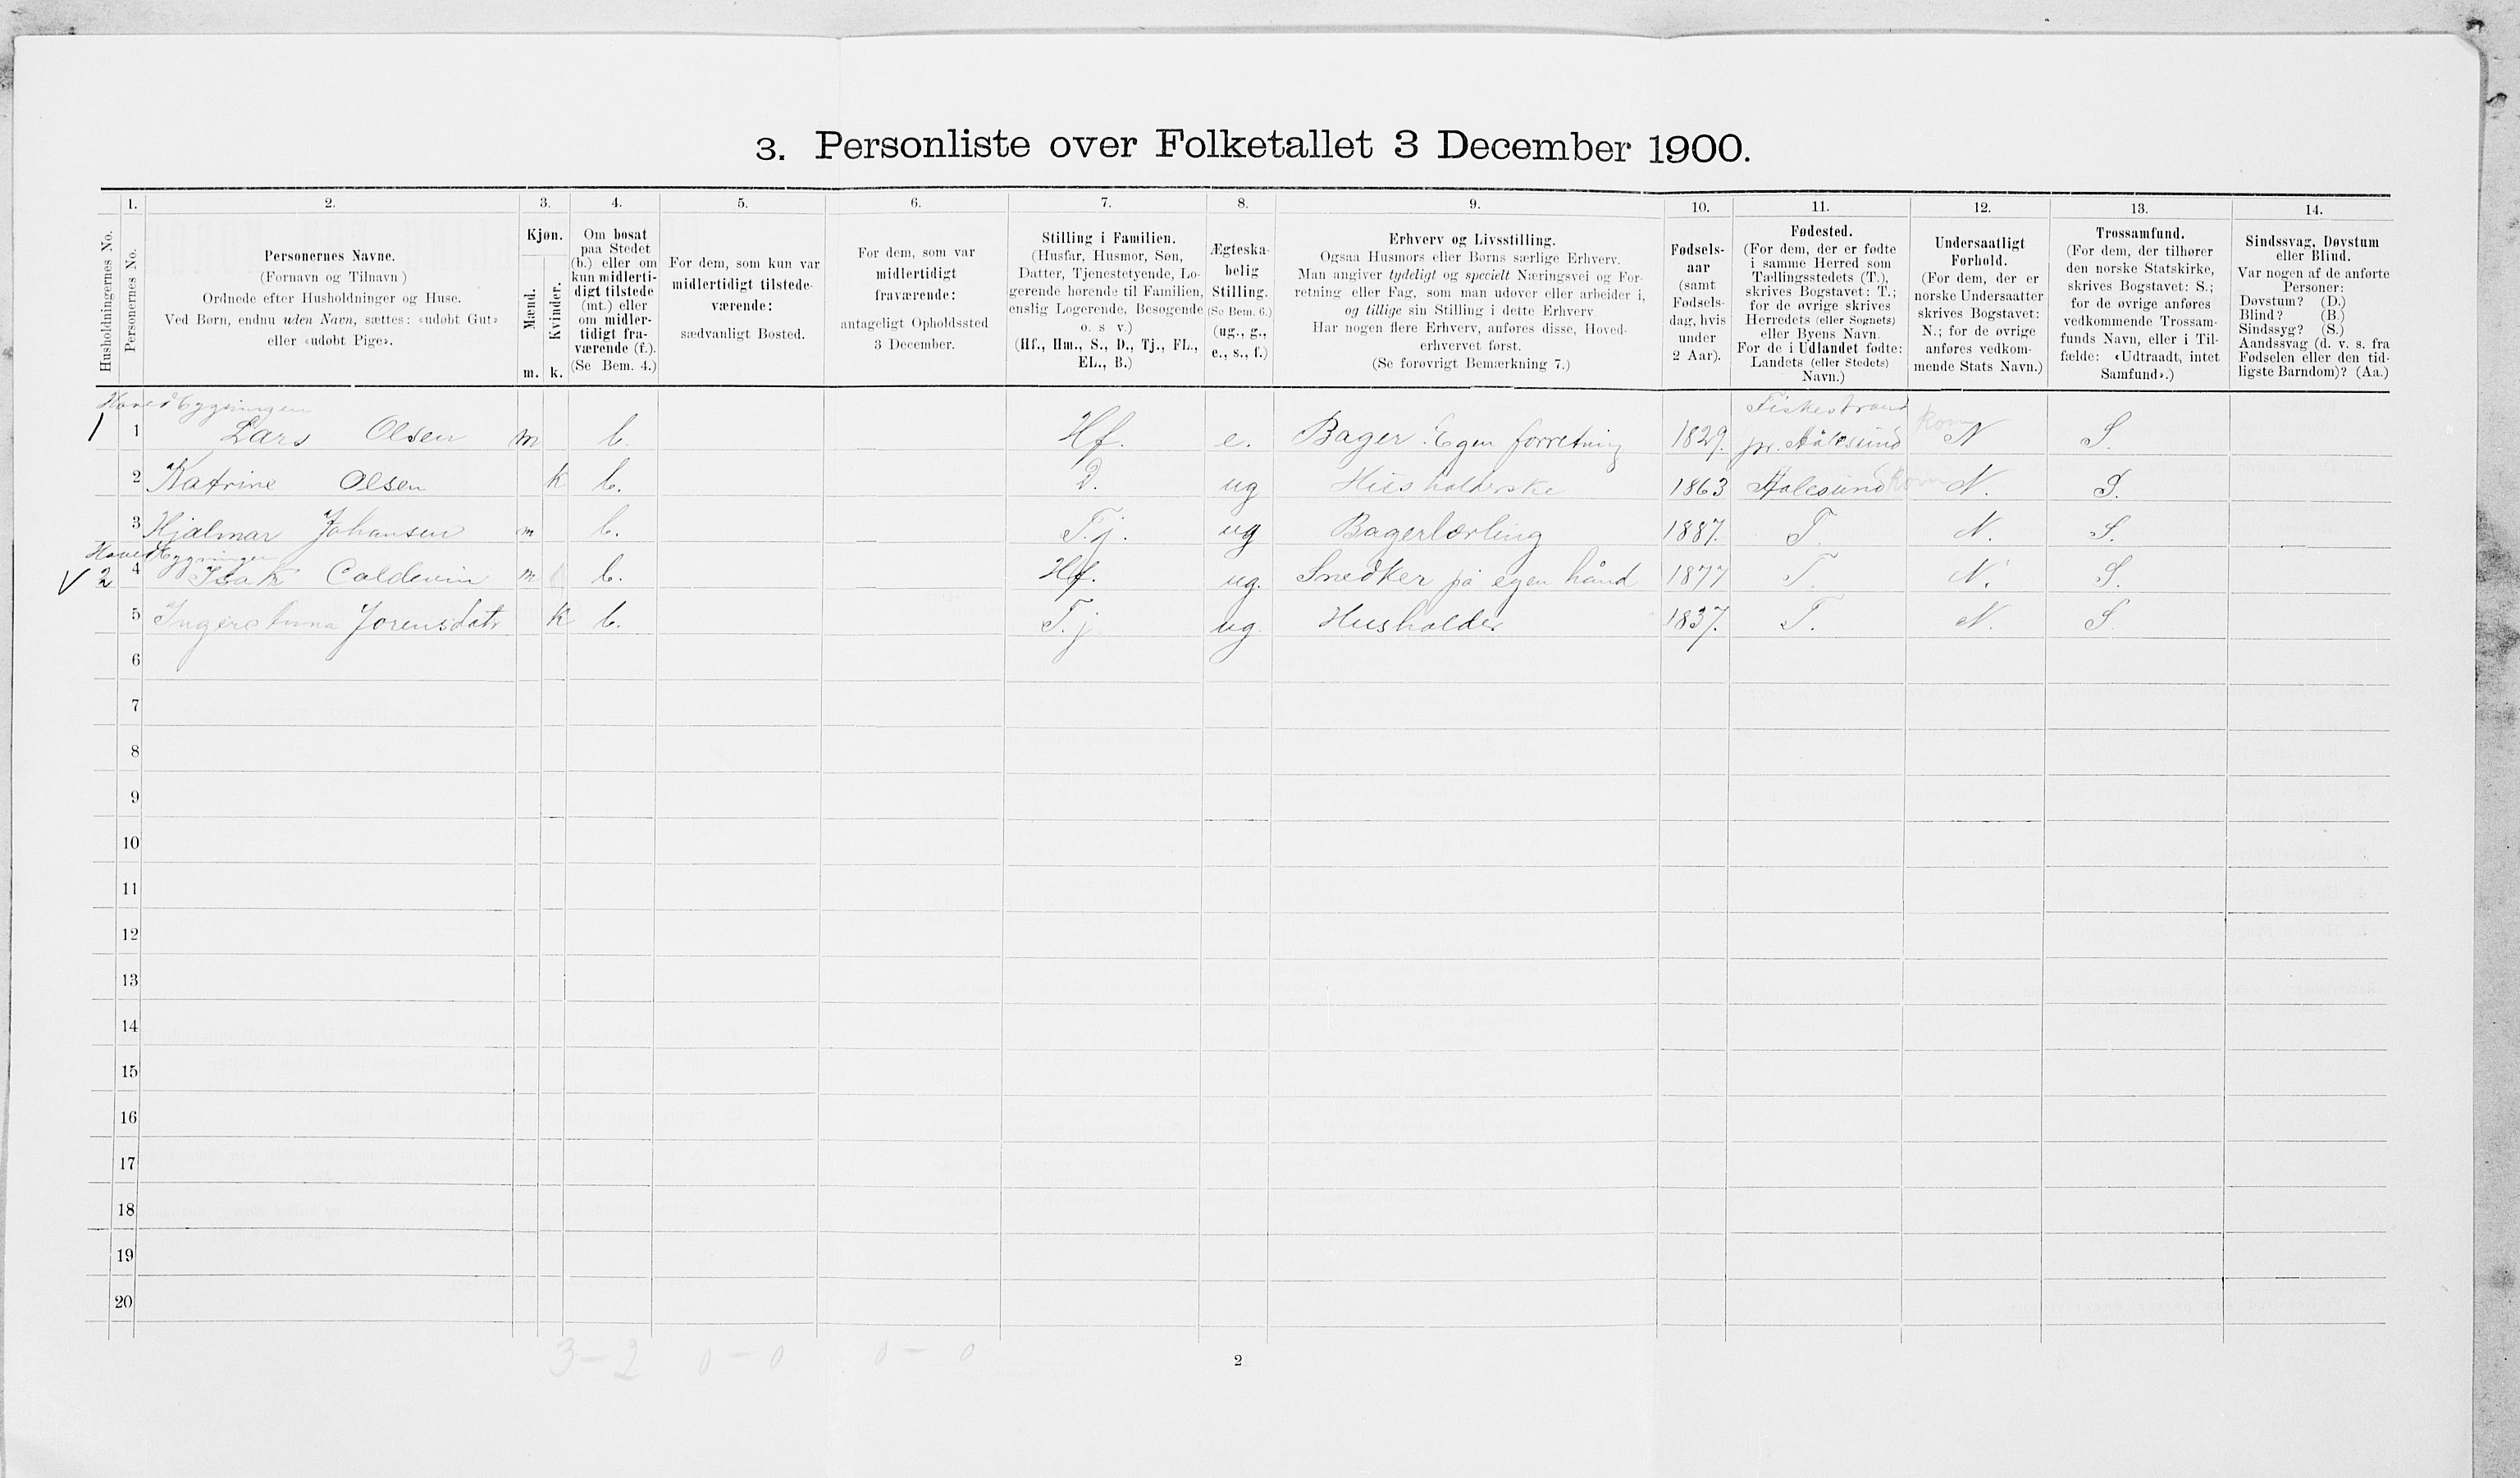 3. Personliste over Folketallet 3 December 1900.
1. 2. 3. 4. 5. 6. 7. 8. 9. 10. 11. 12. 13. 14.
Husholdningernes No.
Personernes No.
Personernes Navne.
(Fornavn og Tilnavn)
Ordnede efter Husholdninger og Huse.
Ved Børn, endnu uden Navn, sættes: «udøbt Gut»
eller «udøbt Pige».
Kjøn.
Mænd.
Kvinder.
m. k.
Om bosat
paa Stedet
(b.) eller om
kun midlerti-
digt tilstede
(mt.) eller
om midler-
tidigt fra-
værende (f.).
(Se Bem. 4.)
For dem, som kun var
midlertidigt tilstede-
værende:
sædvanligt Bosted.
For dem, som var
midlertidigt
fraværende:
antageligt Opholdssted
3 December.
Stilling i Familien.
(Husfar, Husmor, Søn,
Datter, Tjenestetyende, Lo-
gerende hørende til Familien,
enslig Logerende, Besøgende
o. s v.)
(Hf., Hm., S., D., Tj., FL.,
EL., B.)
Ægteska-
belig
Stilling.
(Se Bem. 6.)
(ug., g.,
e., s., f.)
Erhverv og Livsstilling.
Ogsaa Husmors eller Børns særlige Erhverv.
Man angiver tydeligt og specielt Næringsvei og For-
retning eller Fag, som man udøver eller arbeider i,
og tillige sin Stilling i dette Erhverv.
Har nogen flere Erhverv, anføres disse, Hoved-
erhvervet først.
(Se forøvrigt Bemærkning 7.)
Fødsels-
aar
(samt
Fødsels-
dag, hvis
under
2 Aar).
Fødested.
(For dem, der er fødte
i samme Herred som
Tællingsstedets (T.),
skrives Bogstavet: T.;
for de øvrige skrives
Herredets (eller Sognets)
eller Byens Navn.
For de i Udlandet fødte:
Landets (eller Stedets)
Navn.)
Undersaatligt
Forhold.
(For dem, der er
norske Undersaatter
skrives Bogstavet:
N.; for de øvrige
anføres vedkom-
mende Stats Navn.)
Trossamfund.
(For dem, der tilhører
den norske Statskirke,
skrives Bogstavet: S.;
for de øvrige anføres
vedkommende Trossam-
funds Navn, eller i Til-
fælde: «Udtraadt, intet
Samfund».)
Sindssvag, Døvstum
eller Blind.
Var nogen af de anførte
Personer:
Døvstum? (D.)
Blind? (B.)
Sindssyg? (S.)
Aandssvag (d. v. s. fra
Fødselen eller den tid-
ligste Barndom)? (Aa.)
Hovedbygningen Fiskestrand
1 1 Lars Olsen m b. Hf. e. Bager Egen forretning 1829. pr. Aalesund N S.
2 Katrine Olsen k b. D. ug Husholderske 1863 Aalesund N. S.
3 Hjalmar Johansen m b. T.j. ug Bagerlærling 1887. T. N. S.
Hovedbygningen
√ 2 4 Isak Coldevin m b. Hf. ug. Snedker på egen hånd 1877 T. N. S.
5 Jorensdatr k b. T.j ug. Husholder 1837. T. N. S.
6
7
8
9
10
11
12
13
14
15
16
17
18
19
20
3 – 2 0 – 0 0 – 0
2